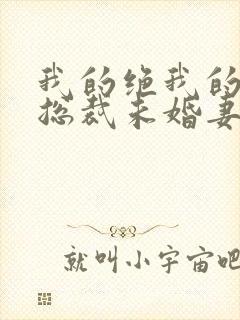 我的绝我的
总裁未婚妻
就叫小宇宙吧